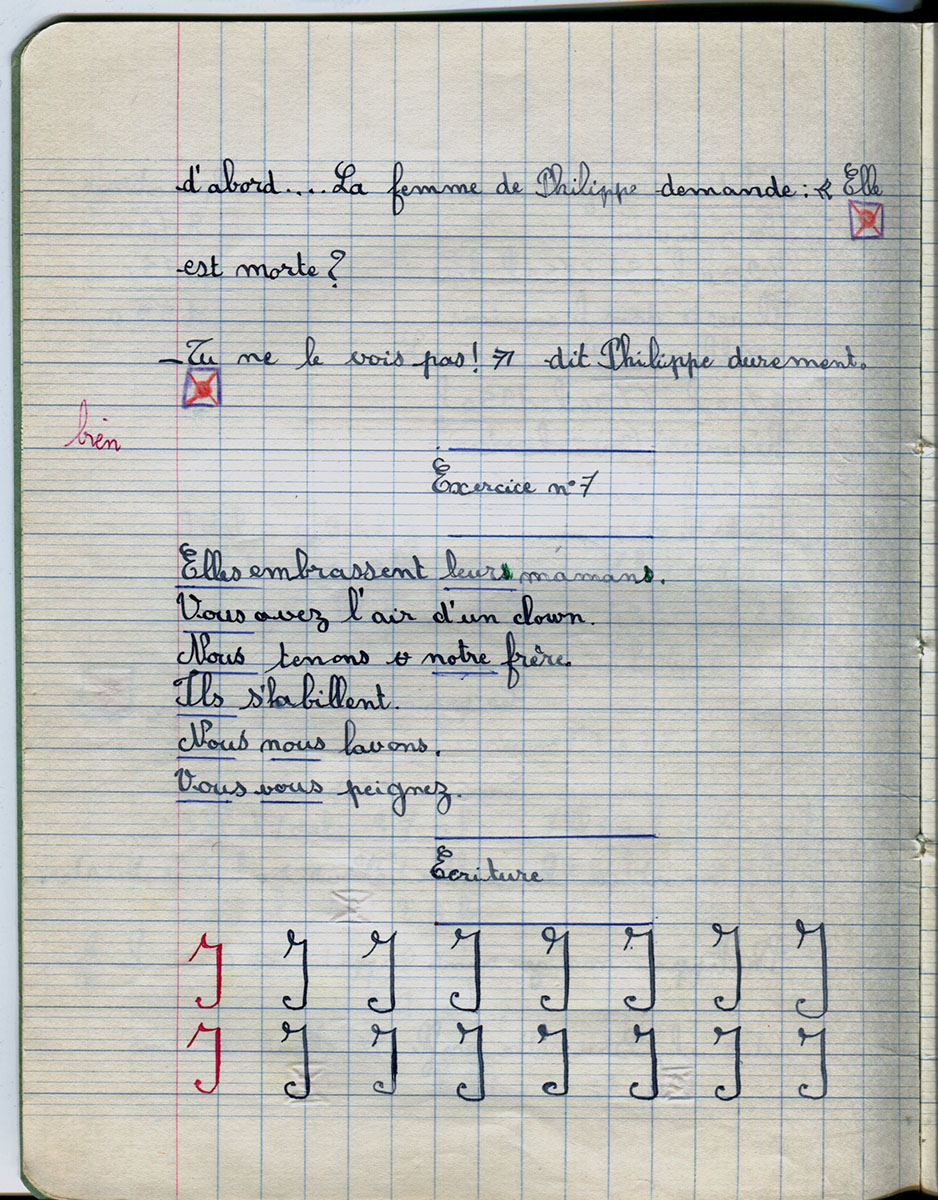 d'abord....La femme de Philippe demande : « Elle
est morte ?
– Tu ne le vois pas ! » dit Philippe durement.
bien
Exercice n° 7
Elles embrassent leurs mamans.
Vous avez l'air d'un clown.
Nous tenons à notre frère.
Ils s'habillent.
Nous nous lavons.
Vous vous peignez.
Ecriture
J J J J J J J J
J J J J J J J J